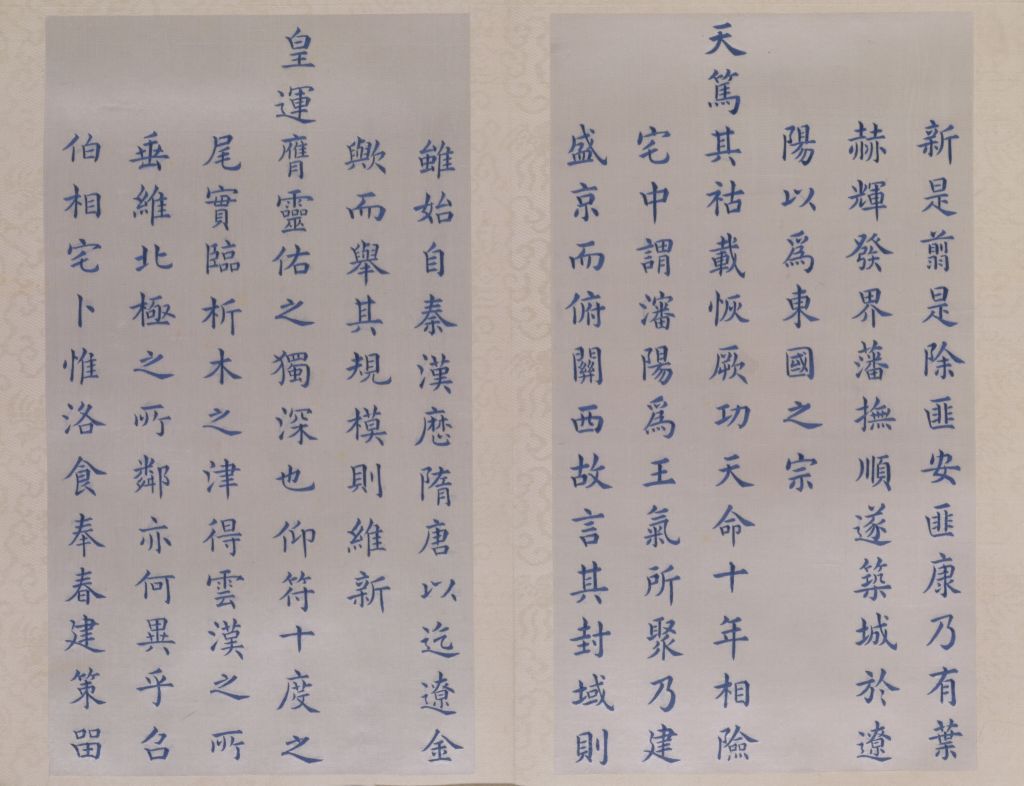 新是翦是除匪安匪康乃有葉
赫輝發界藩撫順遂築城於遼
陽以爲東國之宗
天篤其祜載恢厥功天命十年相險
宅中謂瀋陽爲王氣所聚乃建
盛京而俯關西故言其封域則
雖始自秦漢厯隋唐以迄遼金
歟而舉其規模則維新
皇運膺靈佑之獨深也仰符十度之
尾實臨析木之津得雲漢之所
垂維北極之所鄰亦何異乎召
伯相宅卜惟洛食奉春建策留